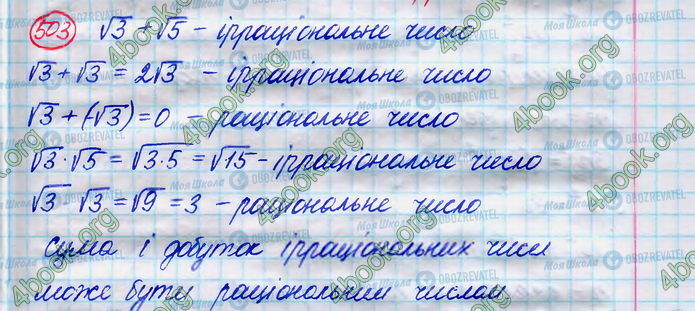 503 √3 + √5 – ірраціональне число
√3 + √3 = 2√3 – ірраціональне число
√3 + (-√3) = 0 – раціональне число
√3 · √5 = √3·5 = √15 – ірраціональне число
√3 √3 = √9 = 3 – раціональне число
Сума і добуток ірраціональних чисел
може бути раціональним числом